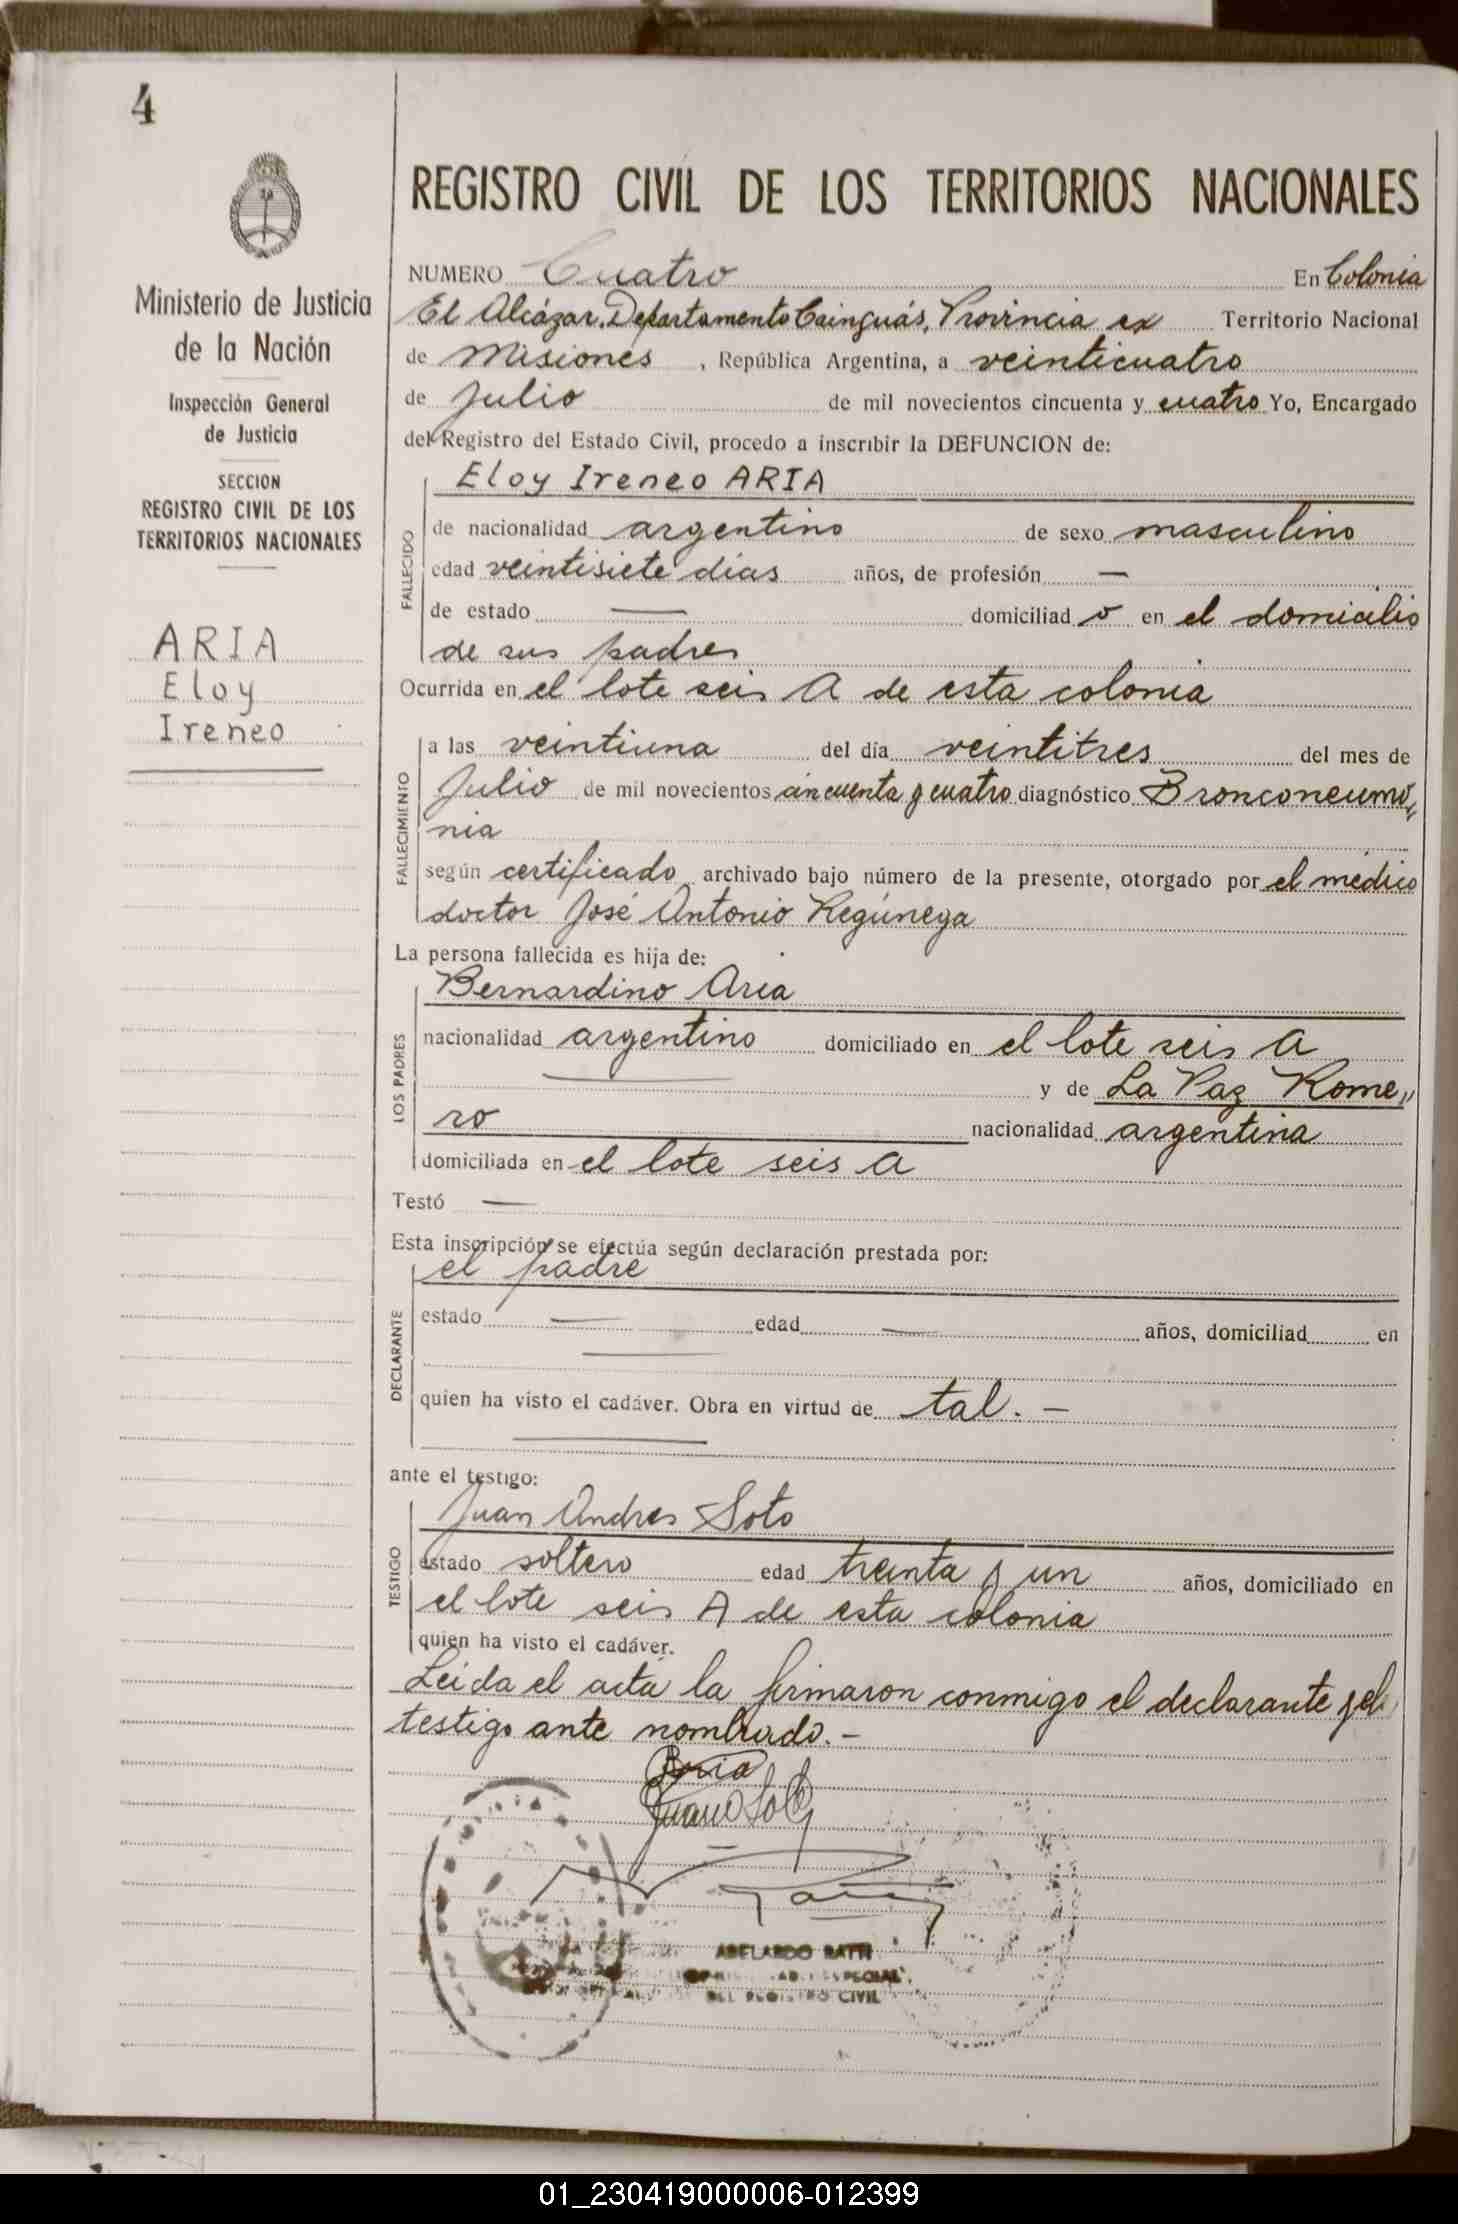 4
Ministerio de Justicia
de la Nación
Inspección General
de Justicia
SECCION
REGISTRO CIVIL DE LOS
TERRITORIOS NACIONALES
ARIA
Eloy
Ireneo
REGISTRO CIVIL DE LOS TERRITORIOS NACIONALES
NUMERO Cuatro En Colonia
El Alcázar, Departamento Cainguás, Provincia ex Territorio Nacional
de Misiones, República Argentina, a veinticuatro
de Julio de mil novecientos cincuenta y cuatro Yo, Encargado
del Registro del Estado Civil, procedo a inscribir la DEFUNCION de:
FALLECIDO
Eloy Ireneo ARIA
de nacionalidad argentino de sexo masculino
edad veintisiete días años, de profesión —
de estado — domiciliado en el domicilio
de sus padres
Ocurrida en el lote seis A de esta colonia
FALLECIMIENTO
a las veintiuna del día veintitres del mes de
Julio de mil novecientos cincuenta y cuatro diagnóstico Bronconeumo,,
nia
según certificado archivado bajo número de la presente, otorgado por el médico
doctor José Antonio Regúnega
La persona fallecida es hija de:
LOS PADRES
Bernardino Aria
nacionalidad argentino domiciliado en el lote seis A
— y de La Paz Rome,,
ro nacionalidad argentina
domiciliada en el lote seis A
Testó —
Esta inscripción se efectúa según declaración prestada por:
DECLARANTE
el padre
estado — edad — años, domiciliad en
—
quien ha visto el cadáver. Obra en virtud de tal. —
ante el testigo:
TESTIGO
Juan Andres Soto
estado soltero edad treinta y un años, domiciliado en
el lote seis A de esta colonia
quien ha visto el cadáver.
Leida el acta la firmaron conmigo el declarante y el
testigo ante nombrado. —
BAria
Juan Soto
ABELARDO RATTI
ESPECIAL
DEL REGISTRO CIVIL
01_230419000006-012399